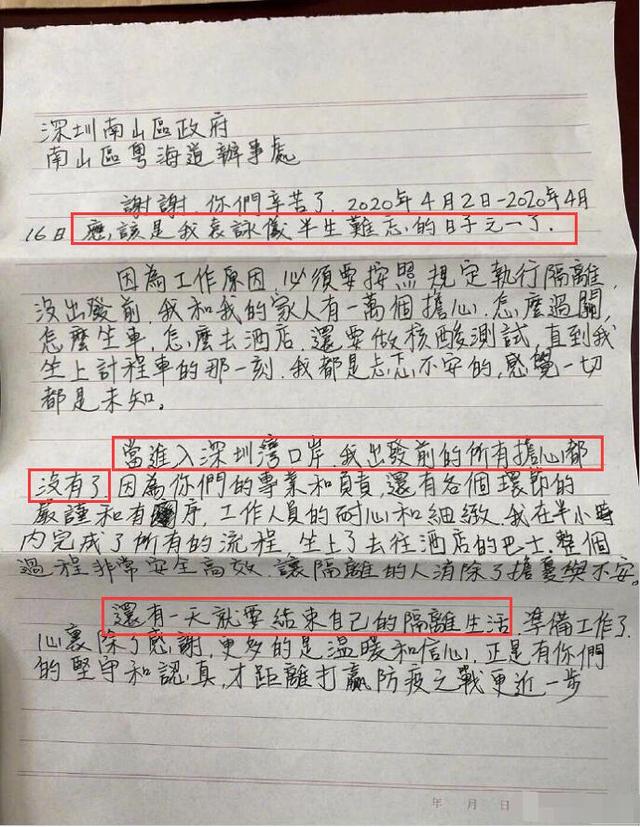 深圳南山區政府
南山區粵海道辦事處
謝謝.你們辛苦了.2020年4月2日-2020年4月
16日應該是我袁詠儀半生難忘的日子元一了.
因為工作原因.必須要按照規定執行隔離,
沒出發前.我和我的家人有一萬個擔心.怎麼過關,
怎麼生車.怎么去酒店.還要做核酸測試,直到我
生上計程車的那一刻.我都是忐忑不安的,感覺一切
都是未知。
當進入深圳灣口岸.我出發前的所有擔心都
沒有了.因為你們的專業和負責.還有各個環節的
嚴謹和有序.工作人員的耐心和細緻.我在半小時
內完成了所有的流程.生上了去往酒店的巴士.整個
過程非常安全高效.讓隔離的人消除了擔憂與不安。
還有一天就要結束自己的隔離生活.準備工作了.
心裏除了感謝,更多的是溫暖和信心.正是有你們
的堅守和認真,才距離打贏防疫之戰更近一步
年 月 日